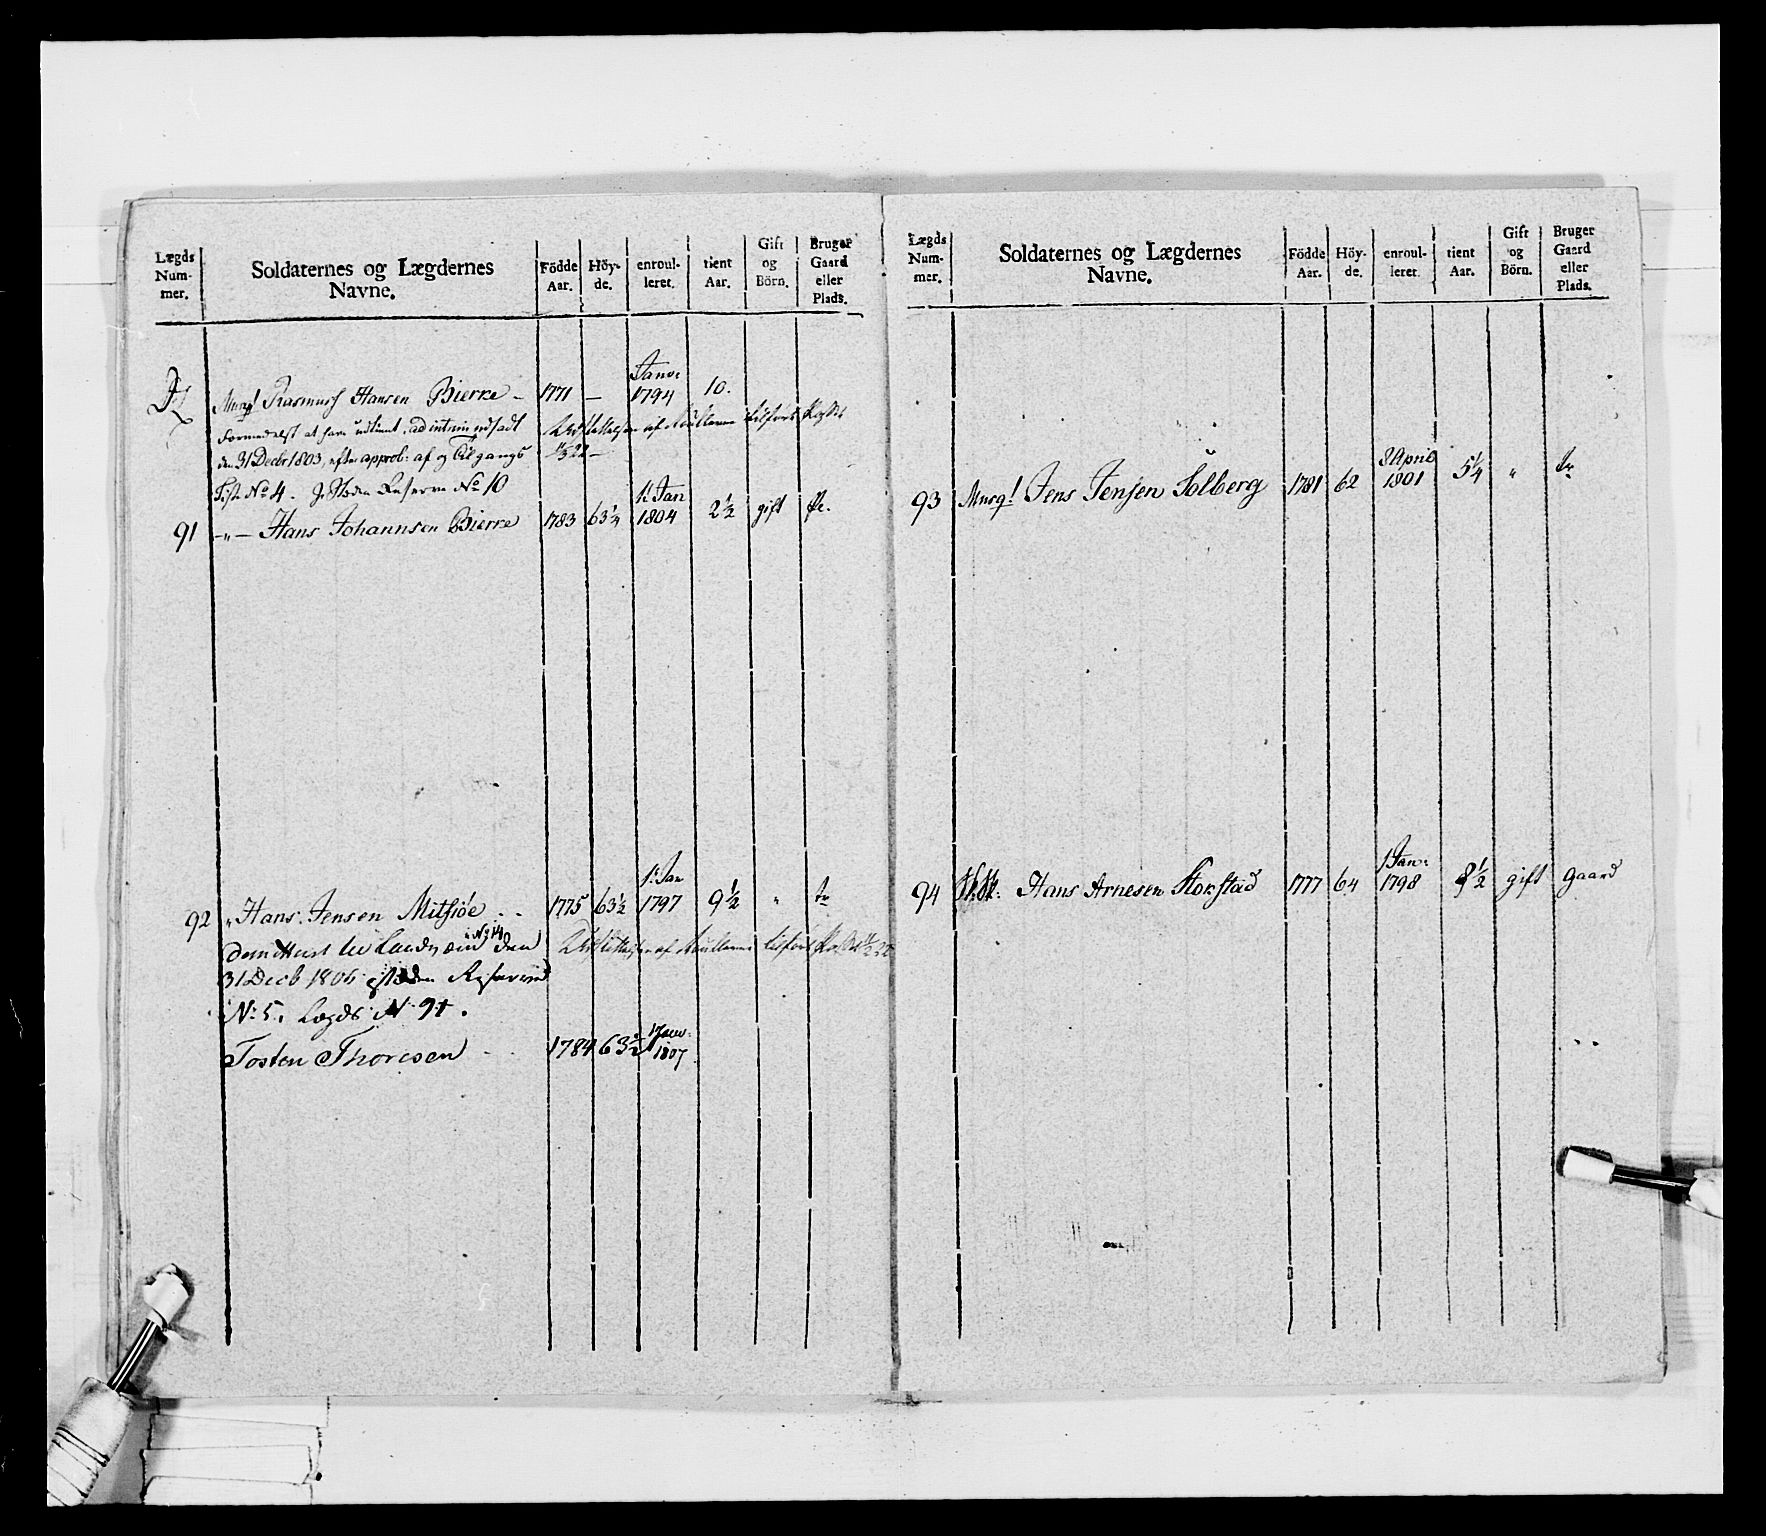 Lægds Num- mer. Soldaternes og Lægdernes Navne. Födde Aar. Höy- de. enroul- leret. tient Aar. Gift og Börn. Bruger Gaard eller Plads.
Musq! Rasmus Hansen Bierke – 1771 — Janv: 1794 10.
Formedelst at have udtient, ad interim udsadt
den 31 Decbr 1803, efter approb: af og Tilgangs
Liste No 4. Reserve No 10
91 –„– Hans Johannsen Bierke 1783 63¼ 1: Jan 1804 2½ gift Pl.
92 „ Hans Jensen Mitsiøe .. 1775 63½ 1: Jan 1797 9½ „
No 14 den
31 Decb 1806 Reserve
No: 5. Lægds N 91.
Tosten Thoresen .. 1784 63½ 1 Janv: 1807
Lægds Num- mer. Soldaternes og Lægdernes Navne. Födde Aar. Höy- de. enroul- leret. tient Aar. Gift og Börn. Bruger Gaard eller Plads.
93 Musq! Jens Jensen Solberg 1781 62 8 April 1801 5¼ „
94 Hans Arnesen Stokstad 1777 64 1 Jan: 1798 8½ gift gaard